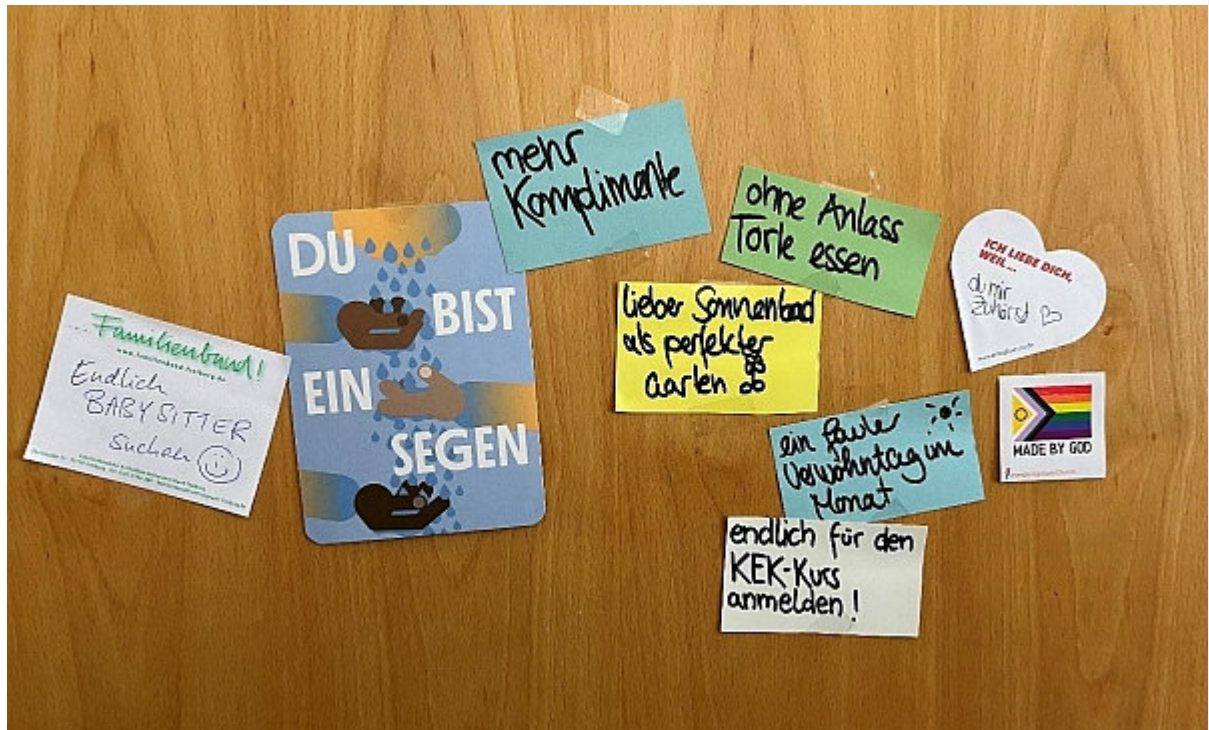 ... Familienband!
www.familienband-freiburg.de
Endlich
BABYSITTER
suchen
DU
BIST
EIN
SEGEN
mehr
Komplimente
ohne Anlass
Torte essen
lieber Sonnenbad
als perfekter
Garten
ein fauler
Verwöhntag im
Monat
endlich für den
KEK-Kurs
anmelden!
ICH LIEBE DICH,
WEIL...
du mir
zuhörst
MADE BY GOD